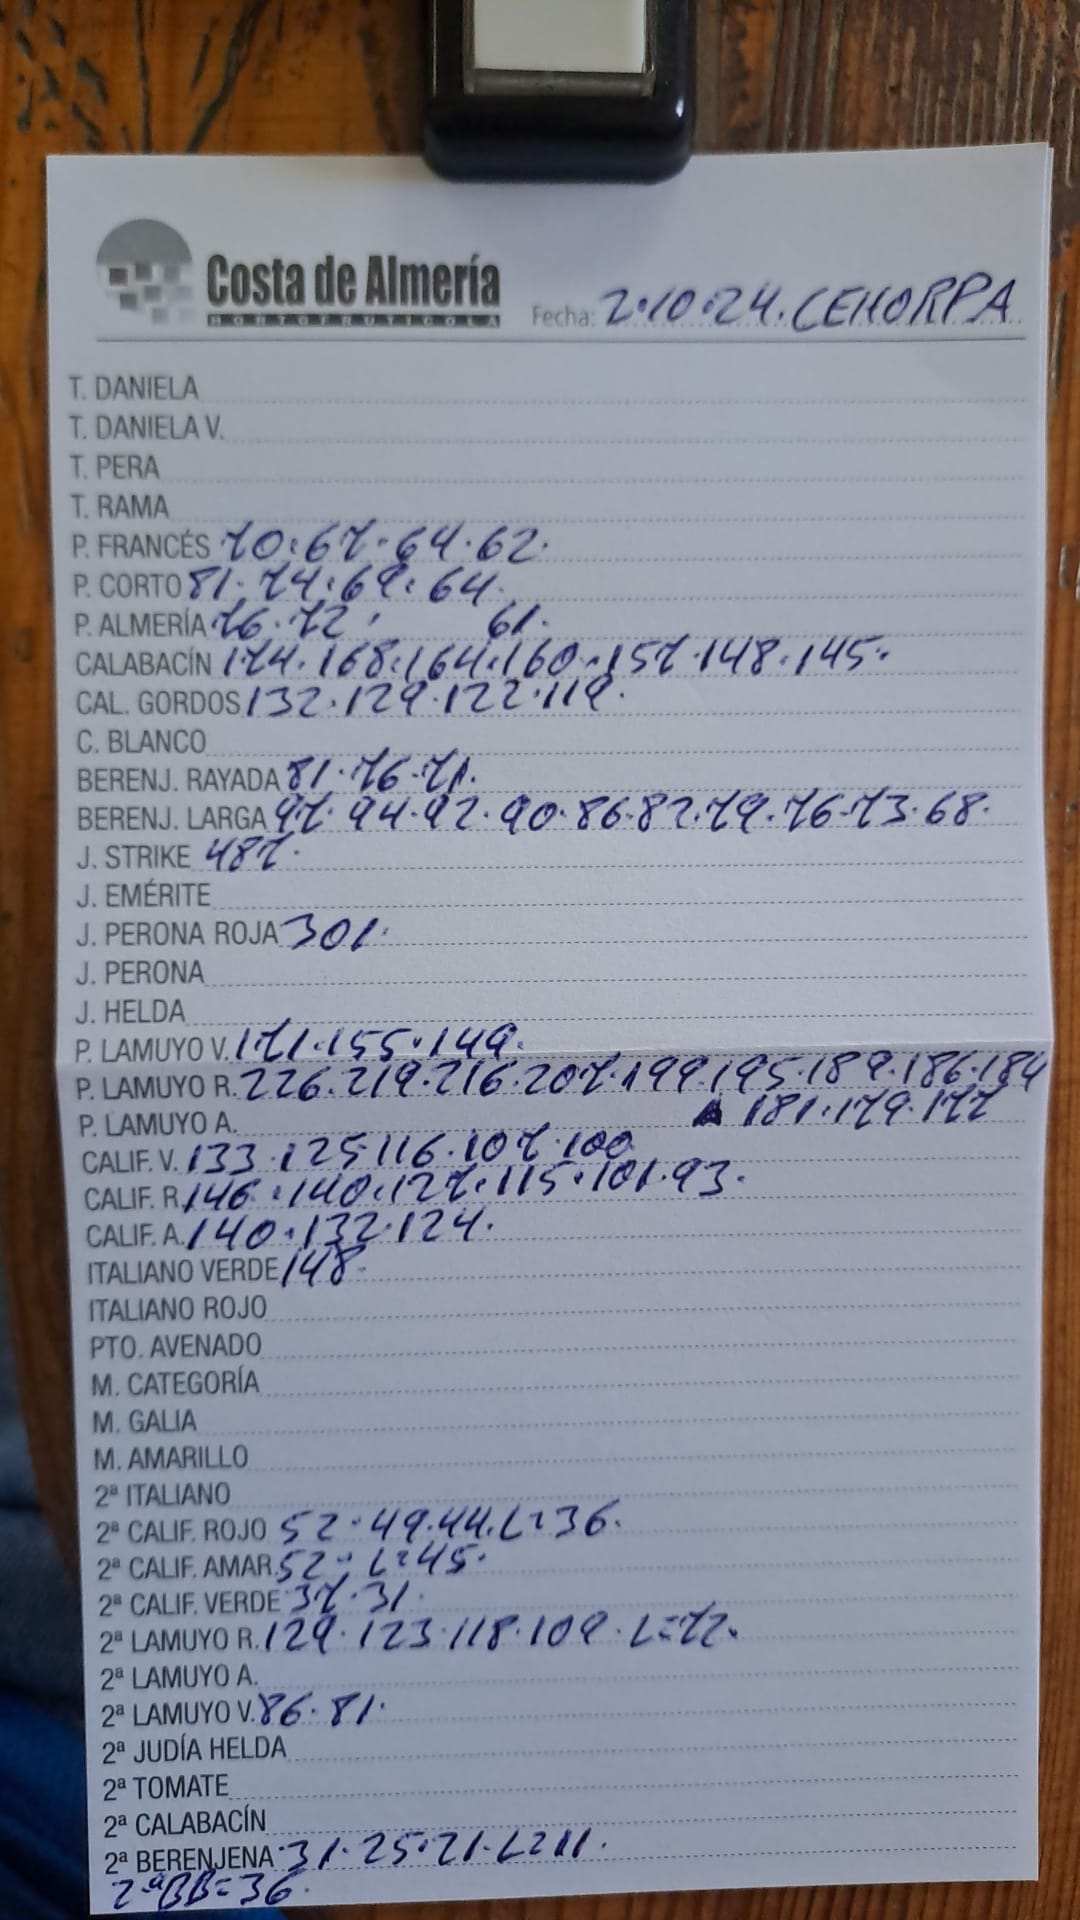 Costa de Almería
HORTOFRUTICOLA
Fecha: 2·10·24. CEHORPA
T. DANIELA
T. DANIELA V.
T. PERA
T. RAMA
P. FRANCÉS 70·67·64·62·
P. CORTO 81·74·69·64·
P. ALMERÍA 76·72· 61·
CALABACÍN 174·168·164·160·157·148·145·
CAL. GORDOS 132·129·122·119·
C. BLANCO
BERENJ. RAYADA 81·76·71·
BERENJ. LARGA 97·94·92·90·86·82·79·76·73·68·
J. STRIKE 487·
J. EMÉRITE
J. PERONA ROJA 301·
J. PERONA
J. HELDA
P. LAMUYO V. 171·155·149·
P. LAMUYO R. 226·219·216·207·199·195·189·186·184
P. LAMUYO A. 181·179·177
CALIF. V. 133·125·116·107·100
CALIF. R. 146·140·127·115·101·93·
CALIF. A. 140·132·124·
ITALIANO VERDE 148·
ITALIANO ROJO
PTO. AVENADO
M. CATEGORÍA
M. GALIA
M. AMARILLO
2ª ITALIANO
2ª CALIF. ROJO 52·49·44·L=36·
2ª CALIF. AMAR. 52·L=45·
2ª CALIF. VERDE 37·31·
2ª LAMUYO R. 129·123·118·109·L=72·
2ª LAMUYO A.
2ª LAMUYO V. 86·81·
2ª JUDÍA HELDA
2ª TOMATE
2ª CALABACÍN
2ª BERENJENA 31·25·21·L=11·
2ªBB=36·